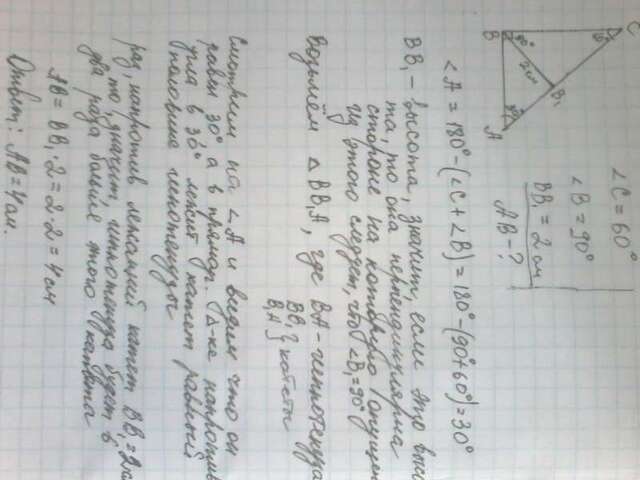 C
60°
B
90°
2 см
B₁
30°
A
∠C = 60°
∠B = 90°
BB₁ = 2 см
AB - ?
∠A = 180° - (∠C + ∠B) = 180° - (90° + 60°) = 30°
BB₁ - высота, значит, если это высо
та, то она перпендикулярна
стороне на которую опущен
Из этого следует, что ∠B₁ = 90°
Возьмём △BB₁A, где BA - гипотенуза
BB₁ } катеты
B₁A
Смотрим на ∠A и видим что он
равен 30° а в прямоуг. △-ке напротив
угла в 30° лежит катет равный
половине гипотенузы
раз, напротив лежащий катет BB₁ = 2 см
то, значит, гипотенуза будет в
два раза больше этого катета
AB = BB₁ · 2 = 2 · 2 = 4 см
Ответ: AB = 4 см.